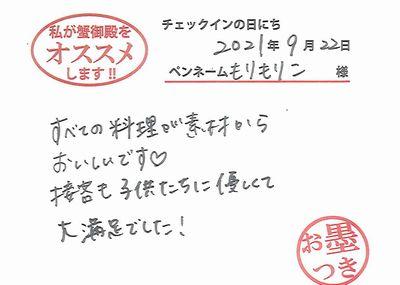 私が蟹御殿を
オススメ
します!!
チェックインの日にち
2021年9月22日
ペンネームもりもりン 様
すべての料理が素材から
おいしいです♡
接客も子供たちに優しくて
大満足でした!
お墨
つき